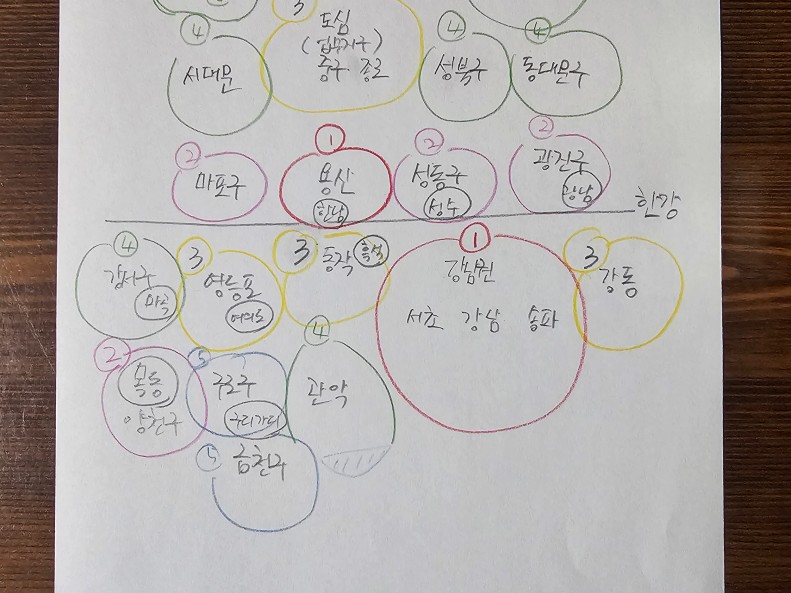 3
도심
(업무지구)
중구 종로
4
서대문
4
성북구
4
동대문구
2
마포구
1
용산
한남
2
성동구
성수
2
광진구
강남
한강
4
강서구
마곡
3
영등포
여의도
3
동작
흑석
1
강남권
서초 강남 송파
3
강동
2
목동
양천구
5
구로구
구리가디
4
관악
5
금천구